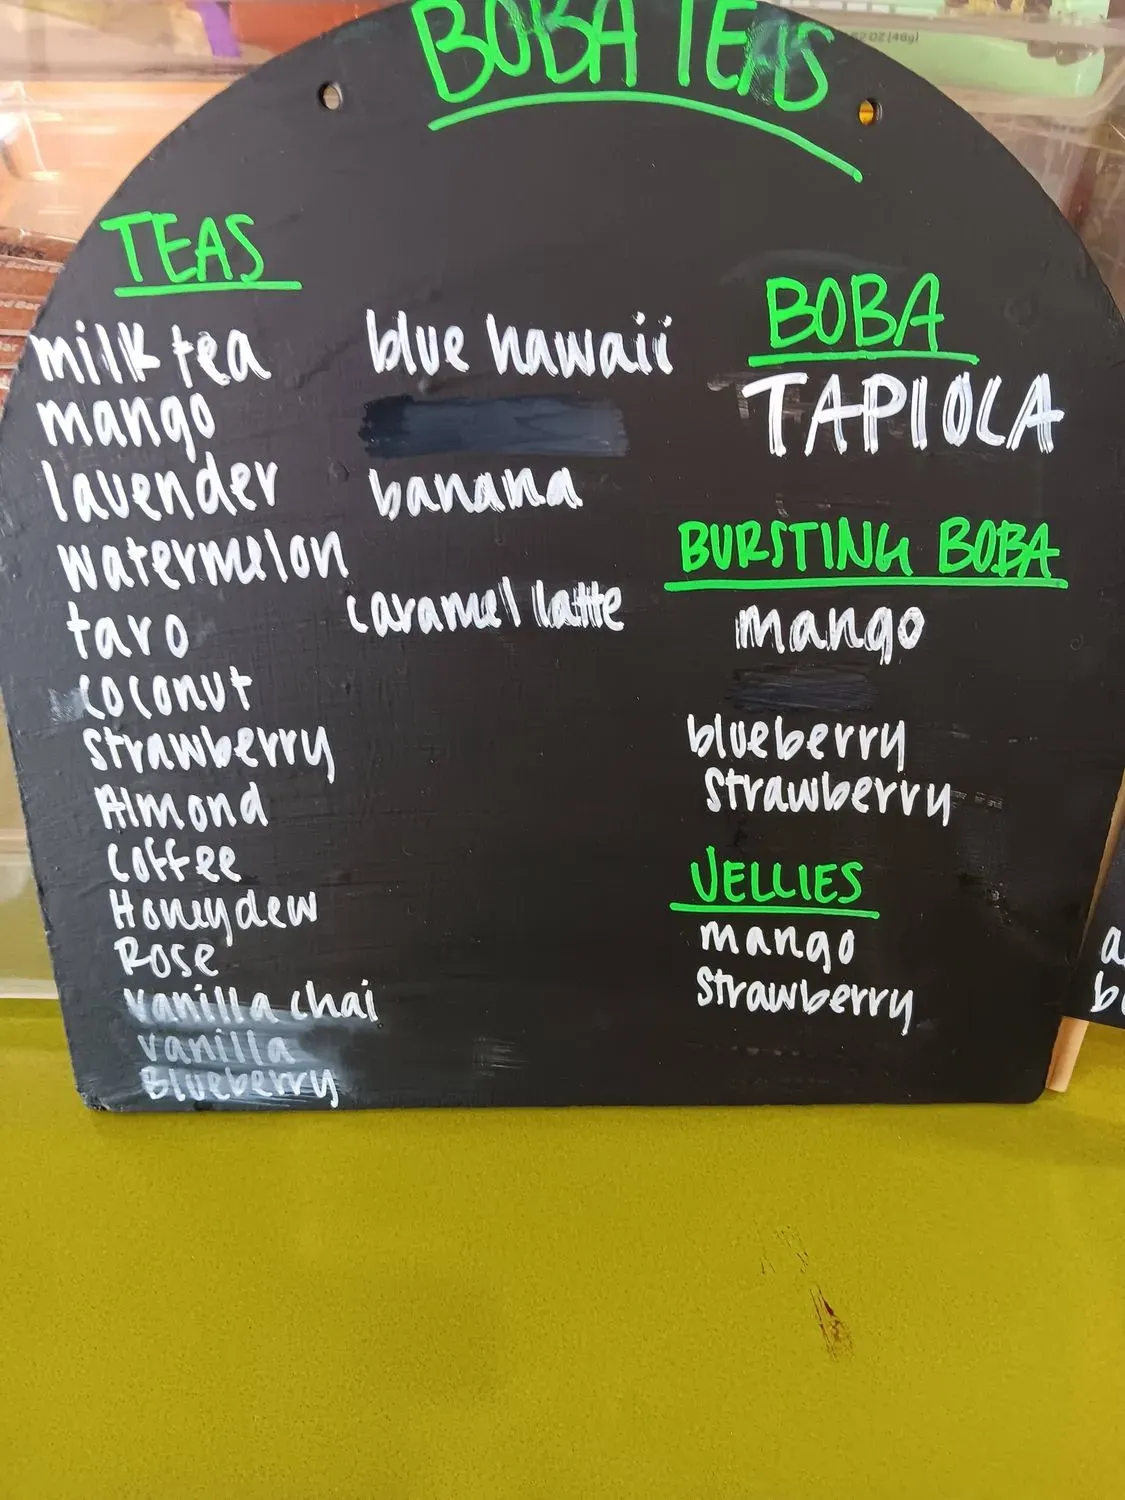 BOBA TEAS
TEAS
milk tea
mango
lavender
watermelon
taro
coconut
strawberry
Almond
coffee
Honeydew
Rose
vanilla chai
vanilla
Blueberry
blue hawaii
banana
caramel latte
BOBA
TAPIOCA
BURSTING BOBA
mango
blueberry
strawberry
JELLIES
mango
strawberry